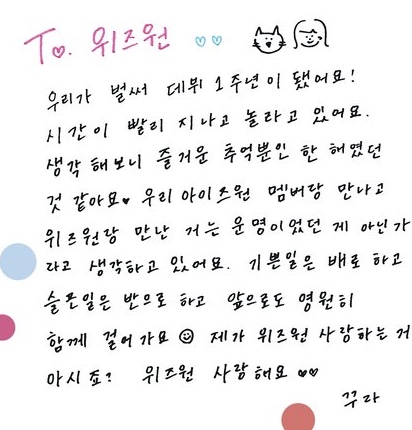 To. 위즈원 ♡♡
우리가 벌써 데뷔 1주년이 됐어요!
시간이 빨리 지나고 놀라고 있어요.
생각해보니 즐거운 추억뿐인 한 해였던
것 같아요♥ 우리 아이즈원 멤버랑 만나고
위즈원랑 만난 거는 운명이었던 게 아닌가
라고 생각하고 있어요. 기쁜일은 배로 하고
슬픈일은 반으로 하고 앞으로도 영원히
함께 걸어가요☺ 제가 위즈원 사랑하는 거
아시죠? 위즈원 사랑해요 ♥♥
꾸라